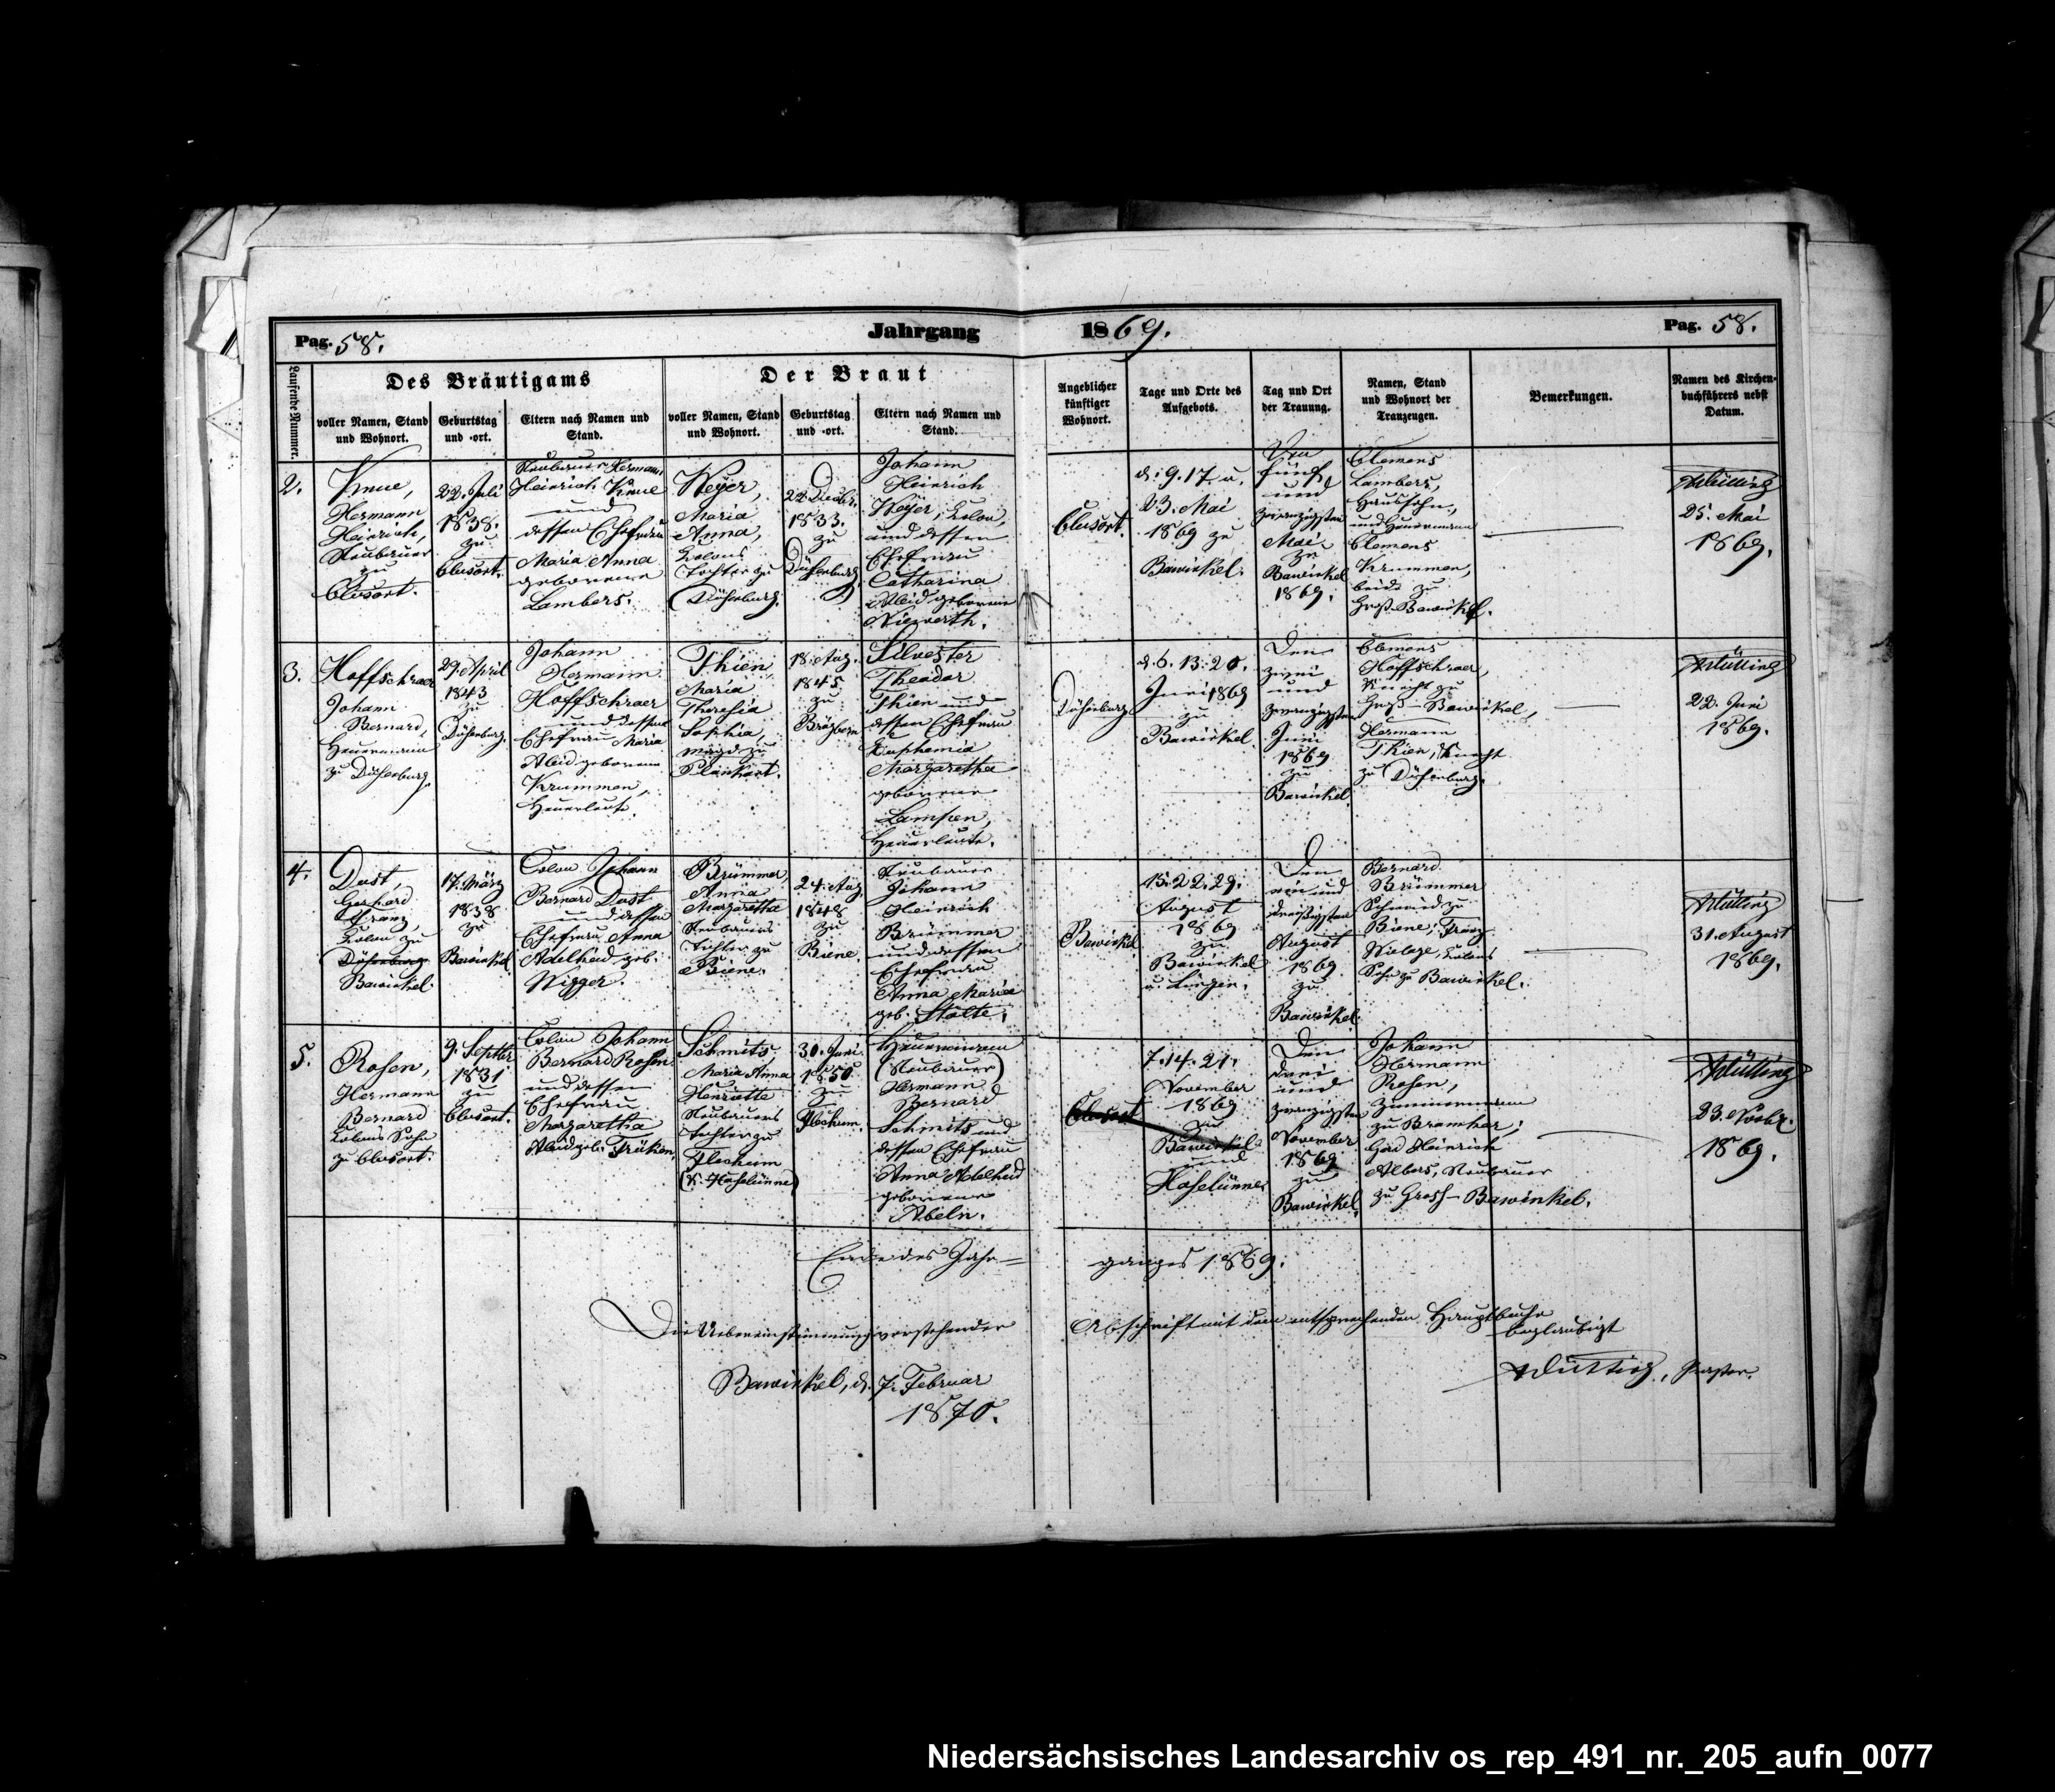 Pag. 58.
Jahrgang 1869.
Pag. 58.
Laufende Nummer.
Des Bräutigams
Der Braut
voller Namen, Stand
und Wohnort.
Geburtstag
und -ort.
Eltern nach Namen und
Stand.
voller Namen, Stand
und Wohnort.
Geburtstag
und -ort.
Eltern nach Namen und
Stand.
Angeblicher
künftiger
Wohnort.
Tage und Orte des
Aufgebots.
Tag und Ort
der Trauung.
Namen, Stand
und Wohnort der
Trauzeugen.
Bemerkungen.
Namen des Kirchen-
buchführers nebst
Datum.
2.
Knue,
Hermann
Heinrich,
Neubauer
zu
Clusort.
22. Juli
1838.
zu
Clusort.
Neubauer Hermann
Heinrich Knue
und
dessen Ehefrau
Maria Anna
geborene
Lambers.
Weyer,
Maria
Anna,
Colons
Tochter zu
Duisenburg.
1833.
zu
Duisenburg.
Johann
Heinrich
Weyer, Colon,
und dessen
Ehefrau
Catharina
Aleid geborene
Niewerth.
Clusort.
d. 9. 17. u.
23. Mai
1869 zu
Bawinkel.
Den
fünf
und
zwanzigsten
Mai
zu
Bawinkel
1869.
Clemens
Lambers,
Haussohn,
und Heuermann
Clemens
Krummen,
beide zu
Groß-Bawinkel.
25. Mai
1869.
3.
Hoffschraer
Johann
Bernard,
Heuermann
zu Duisenburg.
29. April
1843
zu
Duisenburg.
Johann
Hermann
Hoffschraer
und dessen
Ehefrau Maria
Aleid geborene
Krummen,
Heuerleute.
Thien,
Maria
Theresia
Sophia,
Magd zu
Plankort.
18. Aug.
1845
zu
Silvester
Theodor
Thien und
dessen Ehefrau
Euphemia
Margaretha
geborene
Lampen,
Heuerleute.
Duisenburg
d. 6. 13. 20.
Juni 1869
zu
Bawinkel
Den
zwei
und
zwanzigsten
Juni
1869
zu
Bawinkel
Clemens
Hoffschraer,
Knecht zu
Groß-Bawinkel,
Hermann
Thien, Knecht
zu Duisenburg.
22. Juni
1869.
4.
Dust,
Gerhard
Franz,
Colon zu
Duisenburg
Bawinkel.
17. März
1838
zu
Bawinkel.
Colon Johann
Bernard Dust
und dessen
Ehefrau Anna
Adelheid geb.
Wigger.
Brümmer,
Anna
Margaretha
Neubauers
Tochter zu
Biene.
24. Aug.
1848
zu
Biene.
Neubauer
Johann
Heinrich
Brümmer
und dessen
Ehefrau
Anna Maria
geb. Stolte.
Bawinkel
15. 22. 29.
August
1869
zu
Bawinkel
u. Lingen.
Den
ein und
dreißigsten
August
1869
zu
Bawinkel.
Bernard
Brümmer
Schmied zu
Biene; Franz
Colons
Sohn zu Bawinkel.
31. August
1869.
5.
Rosen,
Hermann
Bernard
Colons Sohn
zu Clusort.
9. Septbr
1831
zu
Clusort.
Colon Johann
Bernard Rosen
und dessen
Ehefrau
Margaretha
Aleid geb. Früken.
Schmits,
Maria Anna
Henriette
Neubauers
Tochter zu
Flechum
(K. Haselünne)
30. Juni
1850
zu
Flechum.
Heuermann
(Neubauer)
Hermann
Bernard
Schmits und
dessen Ehefrau
Anna Adelheid
geborene
Abeln.
Clusort
7. 14. 21.
November
1869
zu
Bawinkel
und
Haselünne.
Den
drei
und
zwanzigsten
November
1869
zu
Bawinkel.
Johann
Hermann
Rosen,
Zimmermann
zu Bramhar;
Gerd Heinrich
Albers, Neubauer
zu Gross-Bawinkel.
23. Novbr.
1869.
Ende des Jahr=
ganges 1869.
Die Uebereinstimmung vorstehender Abschrift mit dem entsprechenden Hauptbuche
beglaubigt
Bawinkel, d. 7. Februar
1870.
Pastor.
Niedersächsisches Landesarchiv os_rep_491_nr._205_aufn_0077